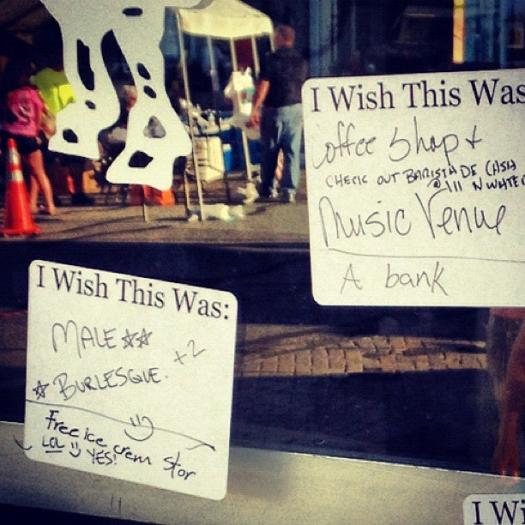 I Wish This Was
Coffee Shop +
CHECK OUT BARISTA DE CASA
@ 111 N WHITE
Music Venue
A bank
I Wish This Was:
MALE ☆☆
+2
☆ BURLESQUE.
Free ice crem stor
LOL YES!
I Wi